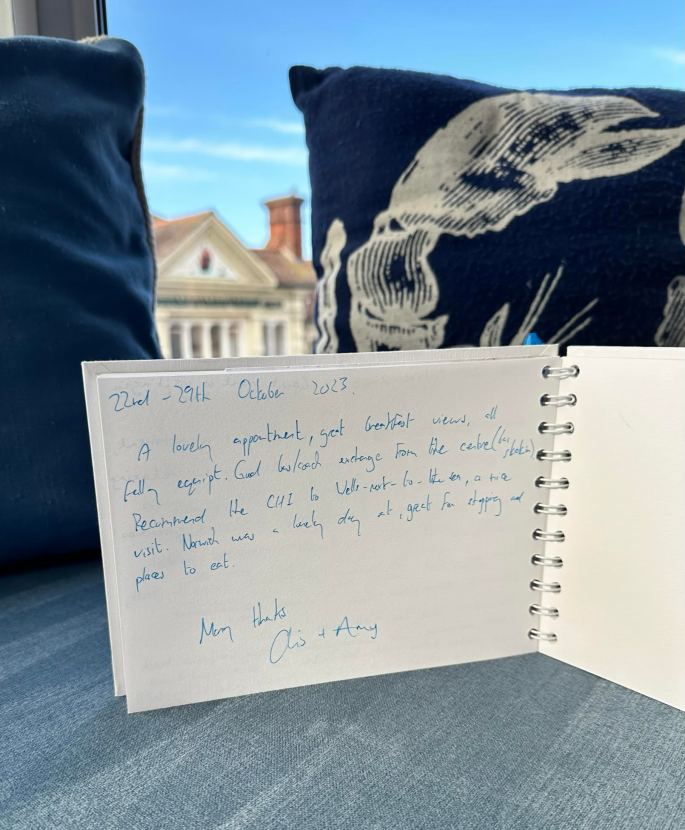 22nd - 29th October 2023.
A lovely appartment, great breakfast views, all
fully equipt. Good bus/coach exchange from the centre (bus station)
Recommend the CH1 to Wells-next-to-the sea, a nice
visit. Norwich was a lovely day at, great for stopping and
places to eat.
Many thanks
+ Amy